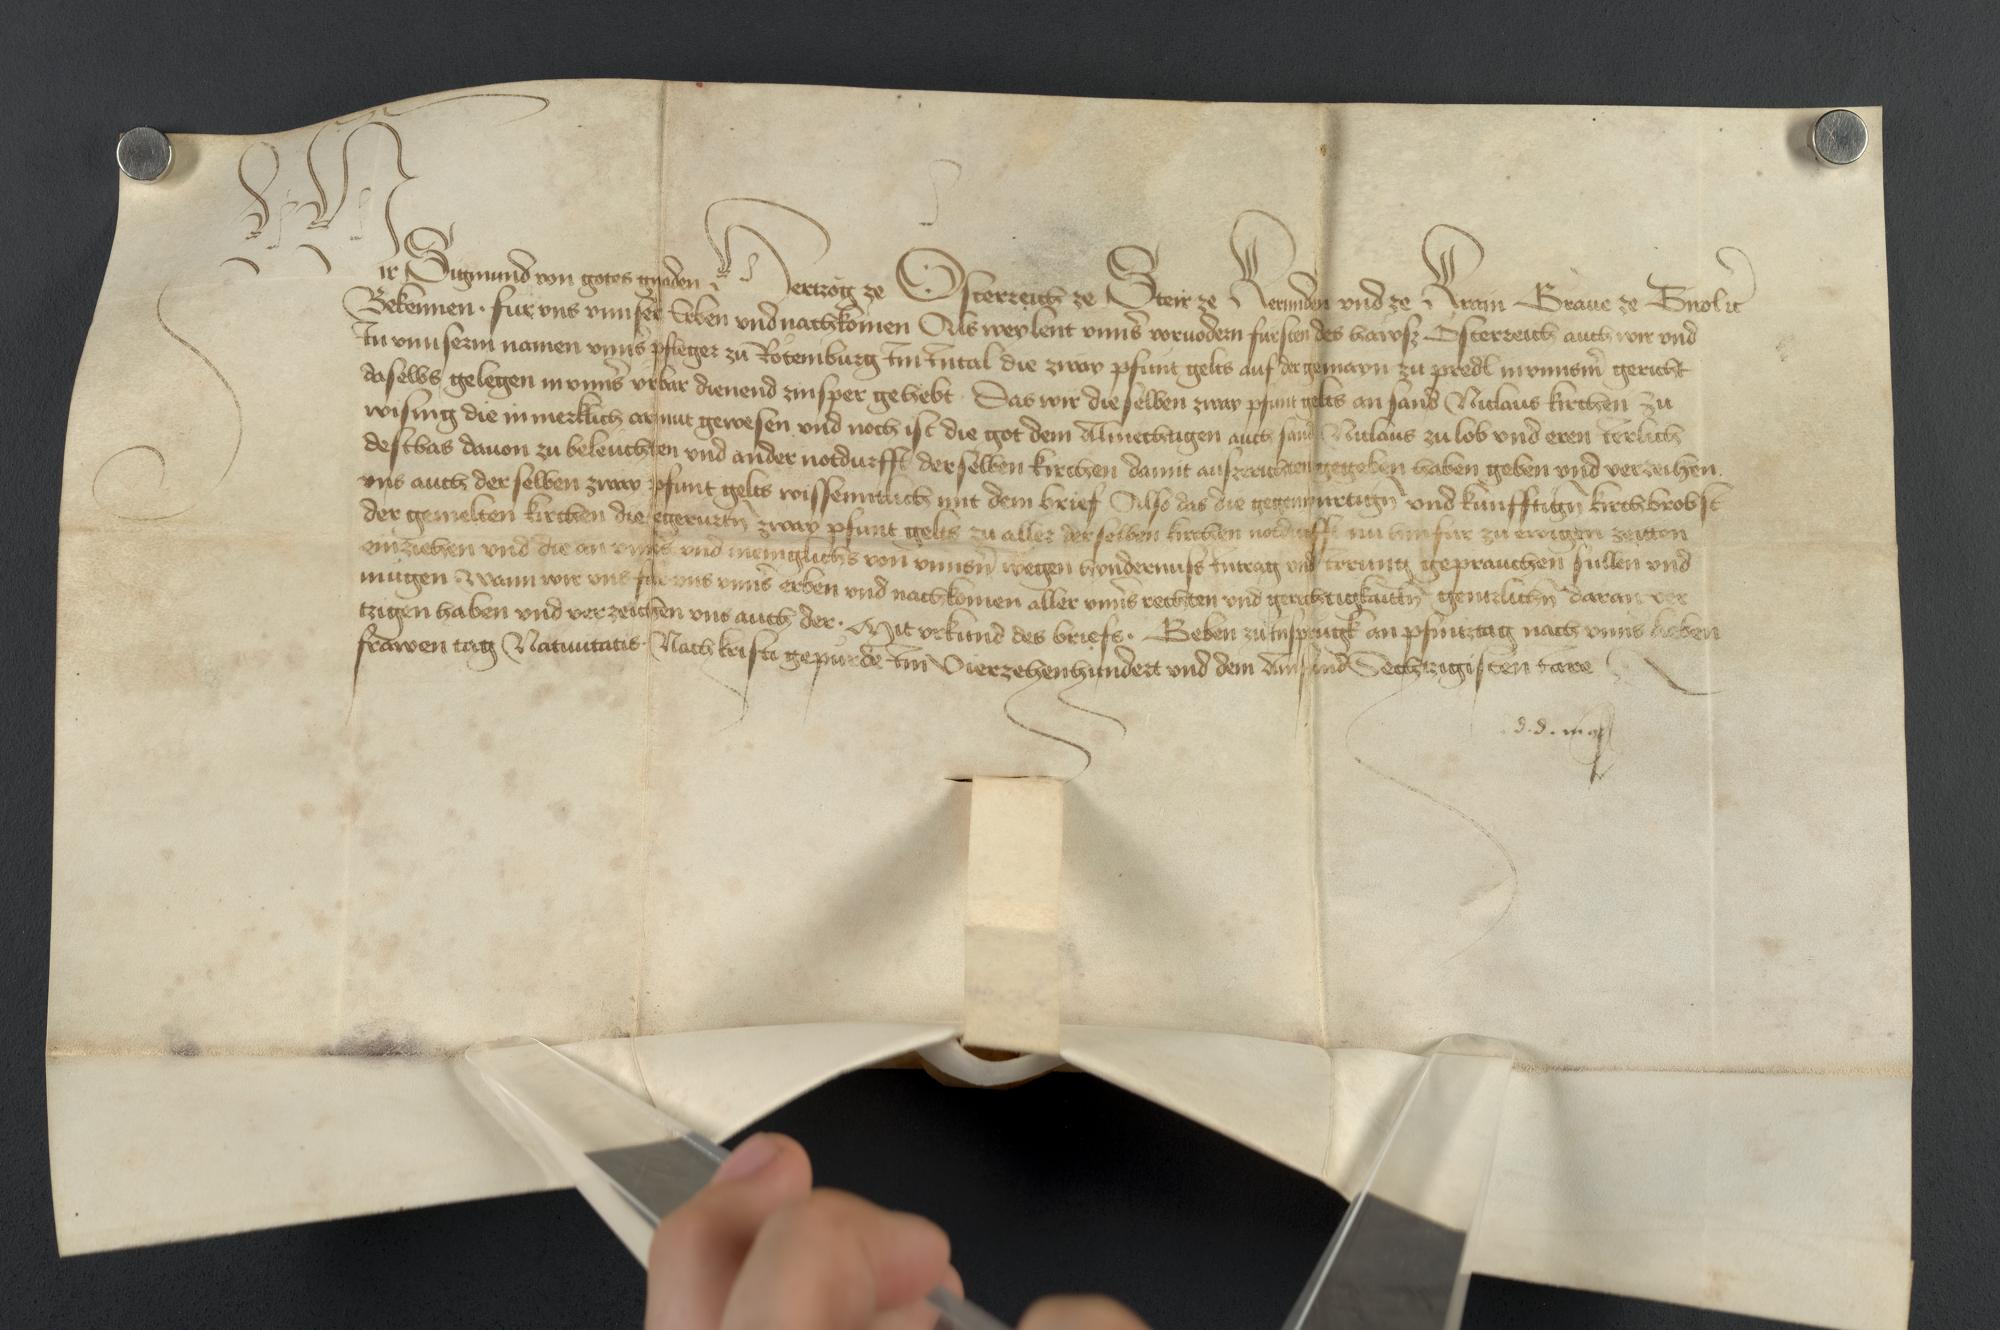 Wir Sigmund von gotes gnaden Hertzog ze Österreich ze Steir ze Kernnden vnd ze Krain Graue ze Tirol etc
Bekennen. fur vns vnnser Erben vnd nachkomen Als weylent vnnser voruodern fursten des hawss Österreich auch wir vnd
In vnnserm namen vnnser pfleger zu Rotemburg Im Intal die zway pfunt gelts auf der gemayn zu predl in vnnserm gericht
daselbs gelegen in vnnser vrbar dienend zinsper gehebt Das wir dieselben zway pfunt gelts an sand Niclaus kirchen zu
wising die in merklich armut gewesen vnd noch ist die got dem Almechtigen auch sand Niclaus zu lob vnd eren Ierlich
destbas dauon zu beleuchten vnd ander notdurfft derselben kirchen damit auszerichten gegeben haben geben vnd verzeihen
vns auch derselben zway pfunt gelts wissenntlich mit dem brief Also das die gegenwurtign vnd kunfftign kirchbrobst
der gemelten kirchen die egerurtn zway pfunt gelts zu aller derselben kirchen notdurfft nu hinfur zu ewigen zeitten
einziehen vnd die an vnnser vnd meniglichs von vnnsern wegen hyndernuss Intrag vnd Irrung geprauchen sullen vnd
mugen Wann wir vns fur vns vnnser erben vnd nachkomen aller vnnser rechten vnd gerechtigkaittn genntzlichn daran ver
tzigen haben vnd verzeichen vns auch der. Mit vrkund des briefs. Geben zu Insprugk an pfintztag nach vnnser lieben
frawen tag Natiuitatis. Nach kristi gepurde Im Vierzehenhundert vnd dem Ainsund Sechtzigisten Iare
d. d. m